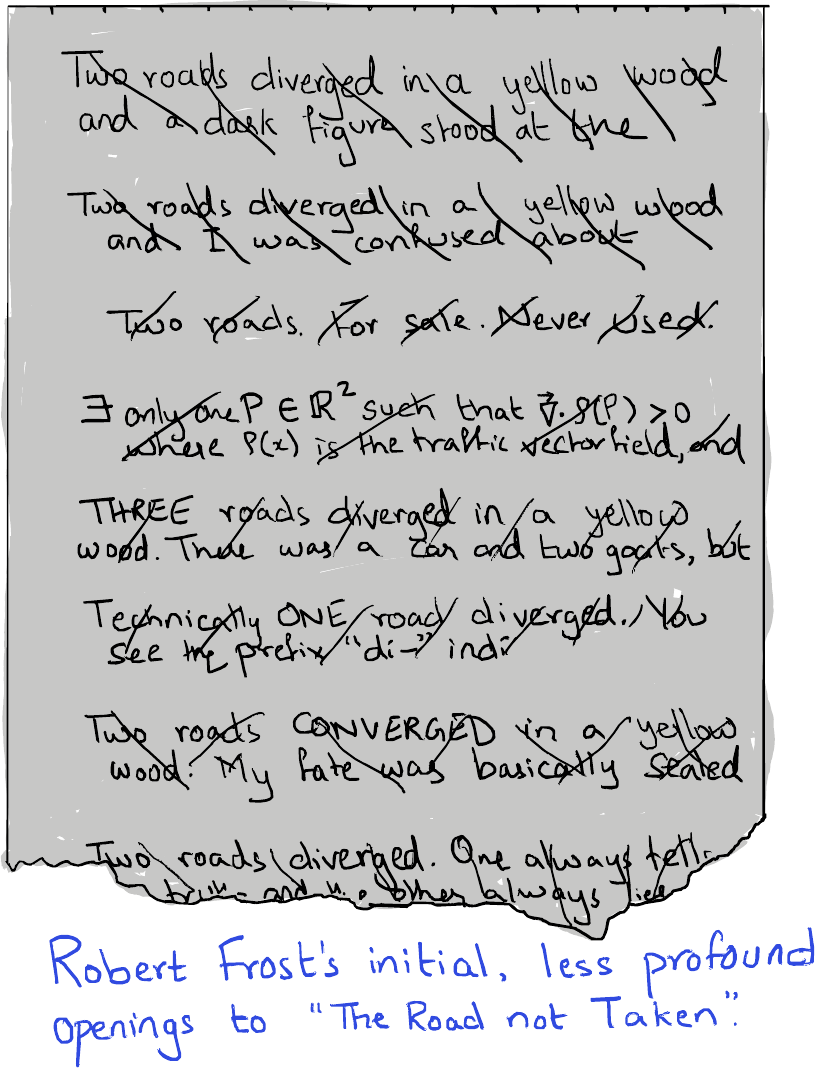 Two roads diverged in a yellow wood
and a dark figure stood at the
Two roads diverged in a yellow wood
and I was confused about
Two roads. For sale. Never Used.
∃ only one P ∈ ℝ² such that ∇⃗.ρ(P) > 0
where ρ(x) is the traffic vector field, and
THREE roads diverged in a yellow
wood. There was a car and two goats, but
Technically ONE road diverged. You
see the prefix "di-" indi
Two roads CONVERGED in a yellow
wood. My fate was basically sealed
Two roads diverged. One always tell
truth and the other always lies
Robert Frost's initial, less profound
openings to "The Road not Taken".